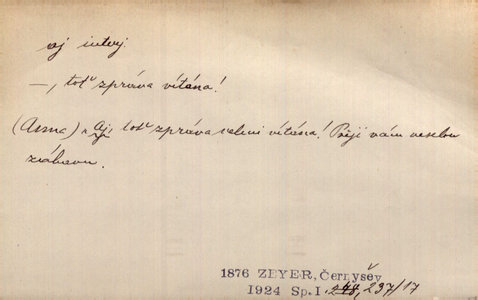 aj interj.
—, toť zpráva vítána!
(Anna) „Aj! toť zpráva velmi vítána! Přeji vám veselou
zábavu.
1876 ZEYER, Černyšev
1924 Sp. I, 237/17